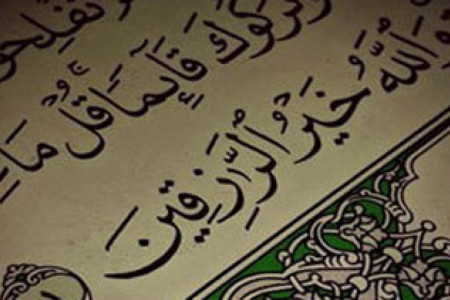 وَتَرَكُوكَ قَآئِمًا قُلْ مَا
وَٱللَّهُ خَيْرُ ٱلرَّٰزِقِينَ